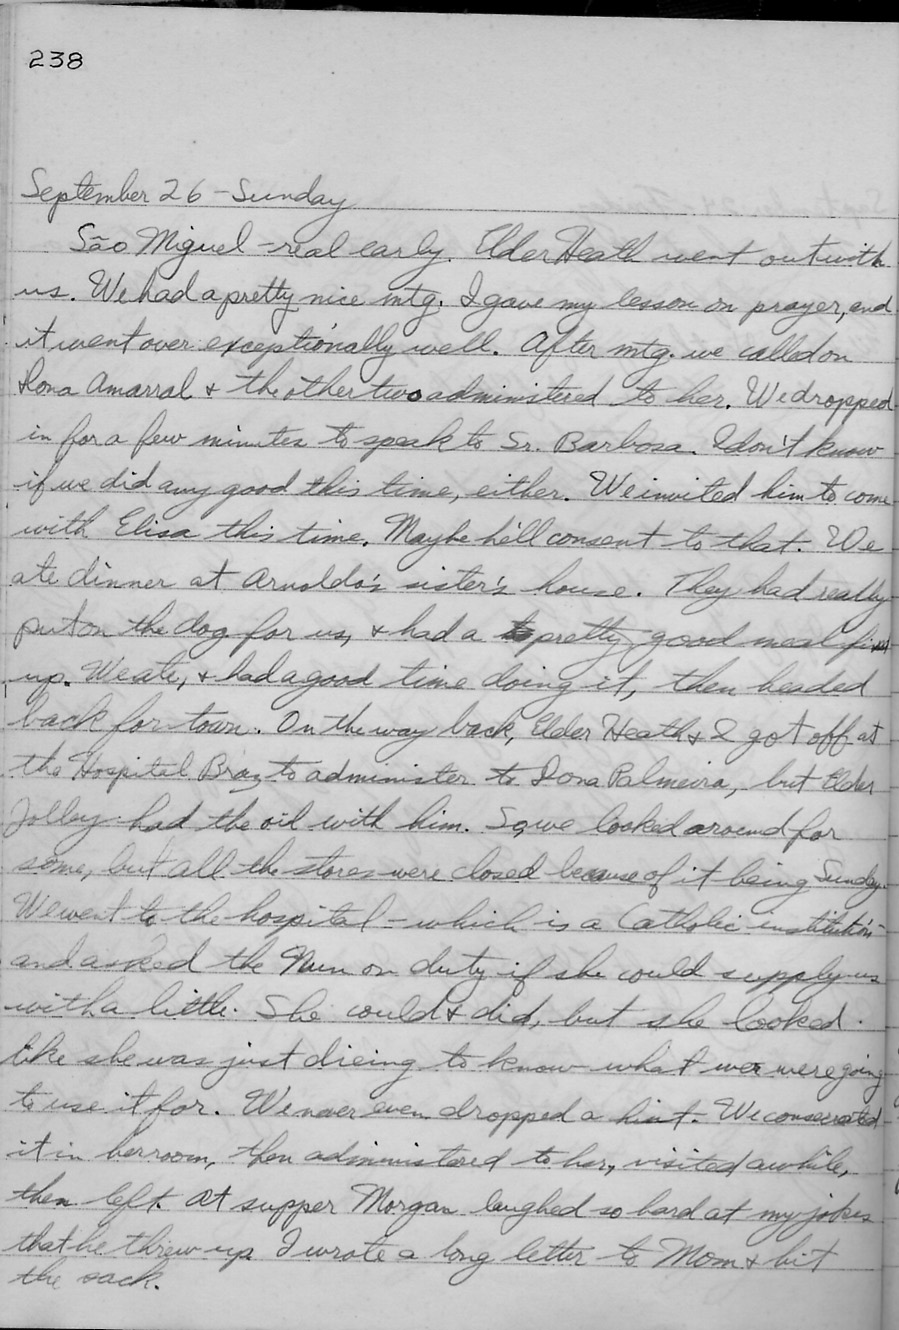 238
September 26 - Sunday
São Miguel - real early. Elder Heath went out with
us. We had a pretty nice mtg. I gave my lesson on prayer, and
it went over exceptionally well. After mtg. we called on
Dona Amarral & the other two administered to her. We dropped
in for a few minutes to speak to Sr. Barbosa. I don't know
if we did any good this time, either. We invited him to come
with Elisa this time. Maybe he'll consent to that. We
ate dinner at Arnaldo's sister's house. They had really
put on the dog for us, & had a pretty good meal fixed
up. We ate, & had a good time doing it, then headed
back for town. On the way back, Elder Heath & I got off at
the Hospital Braz to administer to Dona Palmeira, but Elder
Jolley had the oil with him. So, we looked around for
some, but all the stores were closed because of it being Sunday.
We went to the hospital - which is a Catholic institution -
and asked the Nun on duty if she could supply us
with a little. She could & did, but she looked
like she was just dieing to know what we were going
to use it for. We never even dropped a hint. We consecrated
it in her room, then administered to her, visited awhile,
then left. At supper Morgan laughed so hard at my jokes
that he threw up. I wrote a long letter to Mom & hit
the sack.